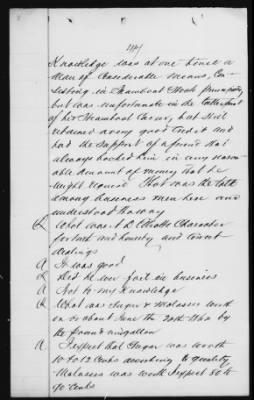 Knowledge was at one time a
Man of Considerable means, Con-
sisting in Steamboat Stock principally
but was unfortunate in the latter part
of his Steamboat Career, but still
retained a very good Credit and
had the support of a friend that
always backed him in any reason-
able amount of money that he
might require That was the talk
among business men here and
understood that way
Q What was D Elliotts Character
for truth and honesty and correct
dealings
A It was good
Q Did he ever fail in business
A Not to my Knowledge
Q What was Sugar & Molasses worth
on or about June the 20th 1862 by
the pound and gallon
A I expect that Sugar was worth
10 to 12 Cents according to quality
Molasses was worth I expect 80 to
90 Cents